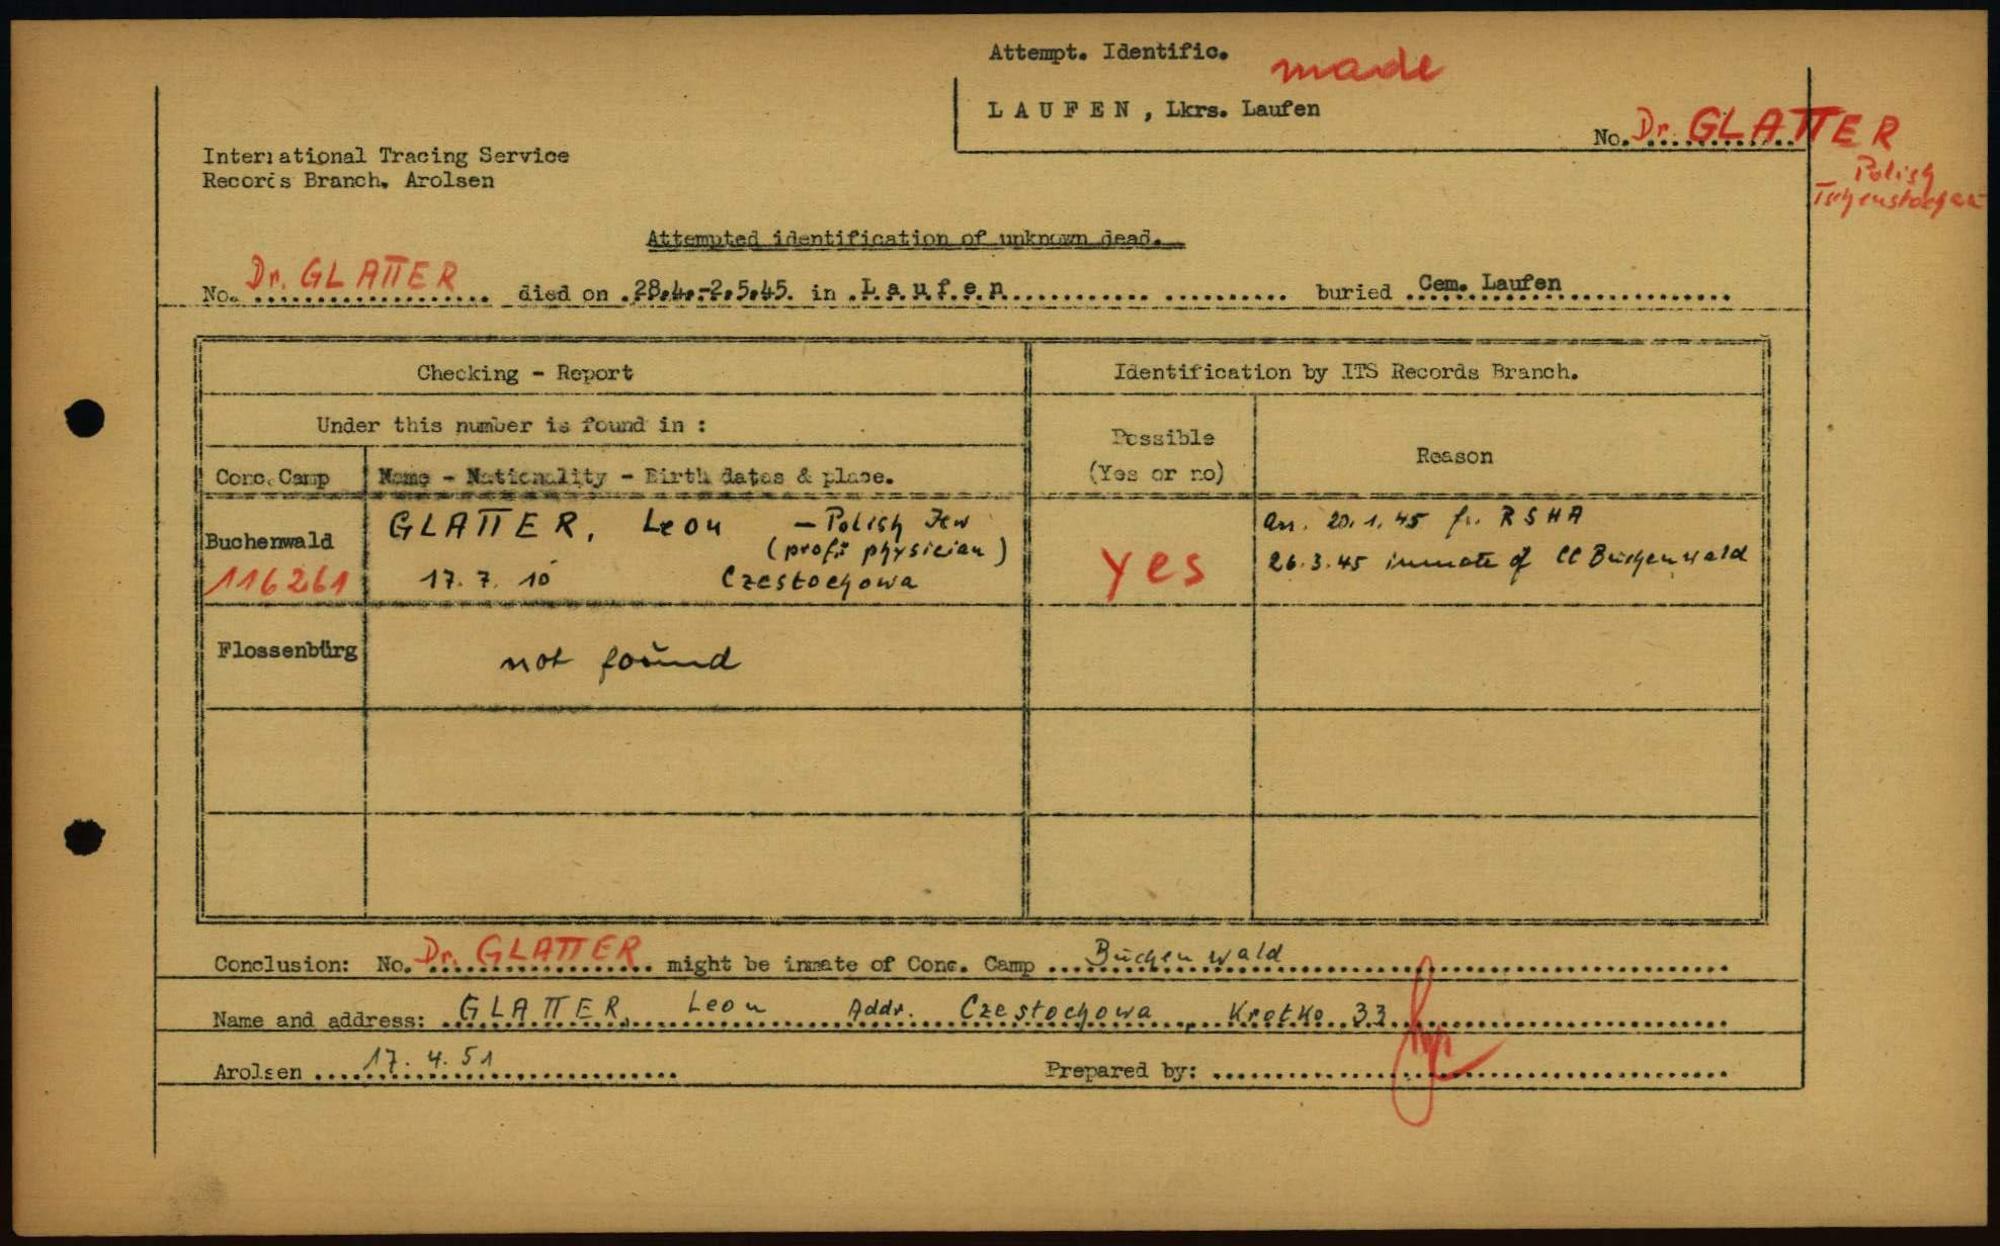 Attempt. Identific. made
LAUFEN, Lkrs. Laufen
No. Dr. GLATTER
Polish
Tschenstochau
International Tracing Service
Records Branch, Arolsen
Attempted identification of unknown dead.
No. Dr. GLATTER died on 28.4.-2.5.45. in Laufen buried Cem. Laufen
Checking - Report
Identification by ITS Records Branch.
Under this number is found in :
Possible
(Yes or no)
Reason
Conc. Camp
Name - Nationality - Birth dates & place.
Buchenwald
116261
GLATTER, Leon - Polish Jew
(prof: physician)
17. 7. 10 Czestochowa
yes
arr. 20.1.45 fr. RSHA
26.3.45 inmate of CC Buchenwald
Flossenbürg
not found
Conclusion: No. Dr. GLATTER might be inmate of Conc. Camp Buchenwald
Name and address: GLATTER, Leon Addr. Czestochowa, Krotko 33
Arolsen 17. 4. 51
Prepared by: